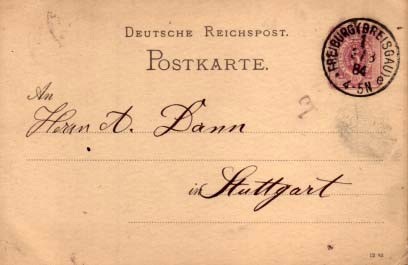 DEUTSCHE REICHSPOST.
POSTKARTE.
FREIBURG (BREISGAU)
1
84
4-5N
An
Herrn A. Dann
in Stuttgart